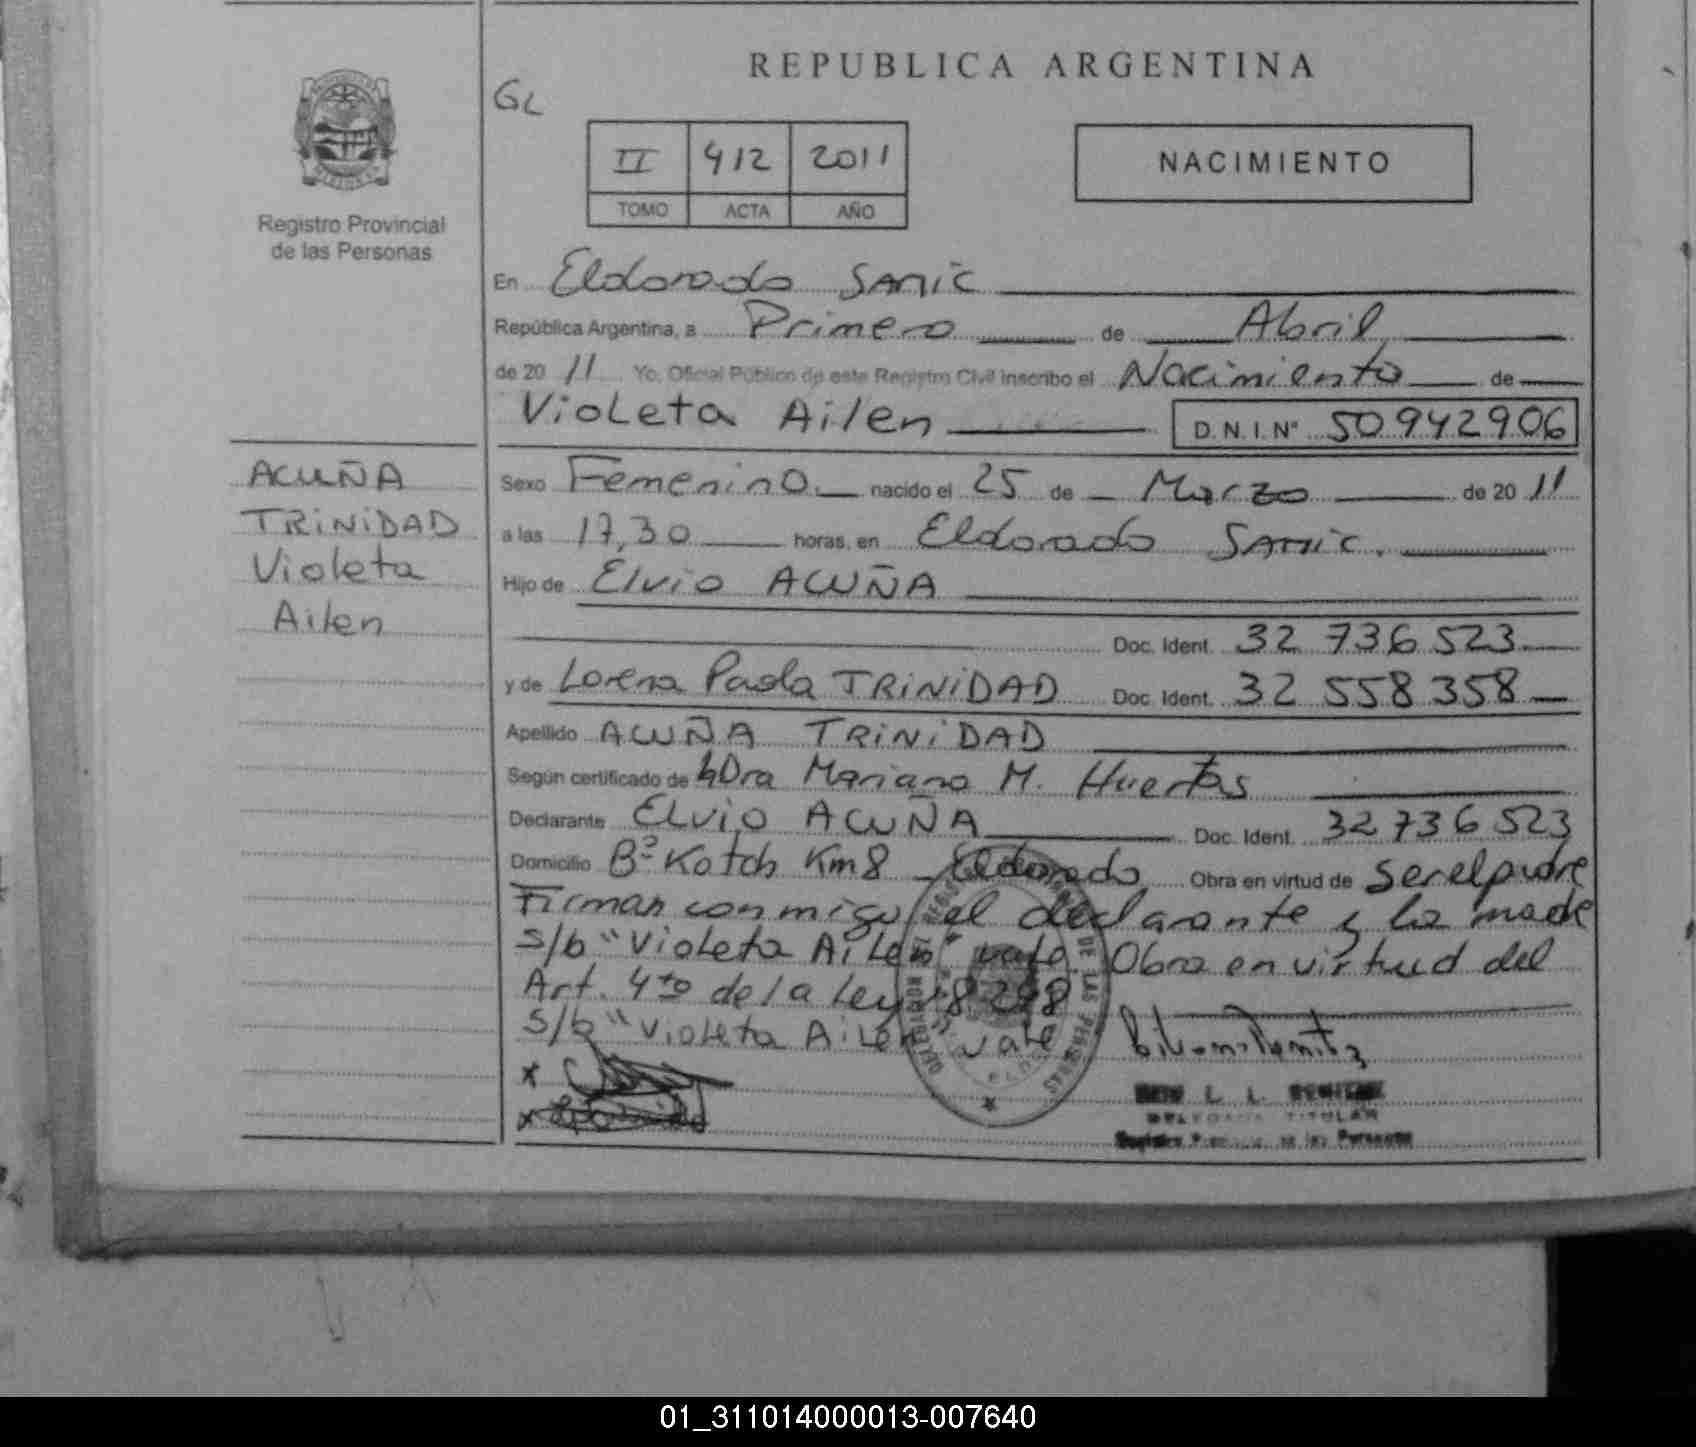 REPUBLICA ARGENTINA
GL
II 412 2011
TOMO ACTA AÑO
NACIMIENTO
Registro Provincial
de las Personas
En Eldorado SAMIC
República Argentina, a Primero de Abril
de 20 11 Yo, Oficial Público de este Registro Civil inscribo el Nacimiento de
Violeta Ailen D.N.I.N° 50942906
ACUÑA
TRINIDAD
Violeta
Ailen
Sexo Femenino nacido el 25 de Marzo de 20 11
a las 17,30 horas, en Eldorado SAMIC.
Hijo de Elvio ACUÑA
Doc. Ident. 32 736 523
y de Lorena Paola TRINIDAD Doc. Ident. 32 558 358
Apellido ACUÑA TRINIDAD
Según certificado de Dra Mariana M. Huertas
Declarante ELVIO ACUÑA Doc. Ident. 32 736 523
Domicilio B° Kotch Km 8 Eldorado Obra en virtud de ser el padre
Firman conmigo el declarante y la madre
s/b "Violeta Ailen" vale. Obra en virtud del
Art. 4to de la Ley 18248
s/b "Violeta Ailen" vale
DE LAS PERSONAS
DELEGADA TITULAR
01_311014000013-007640